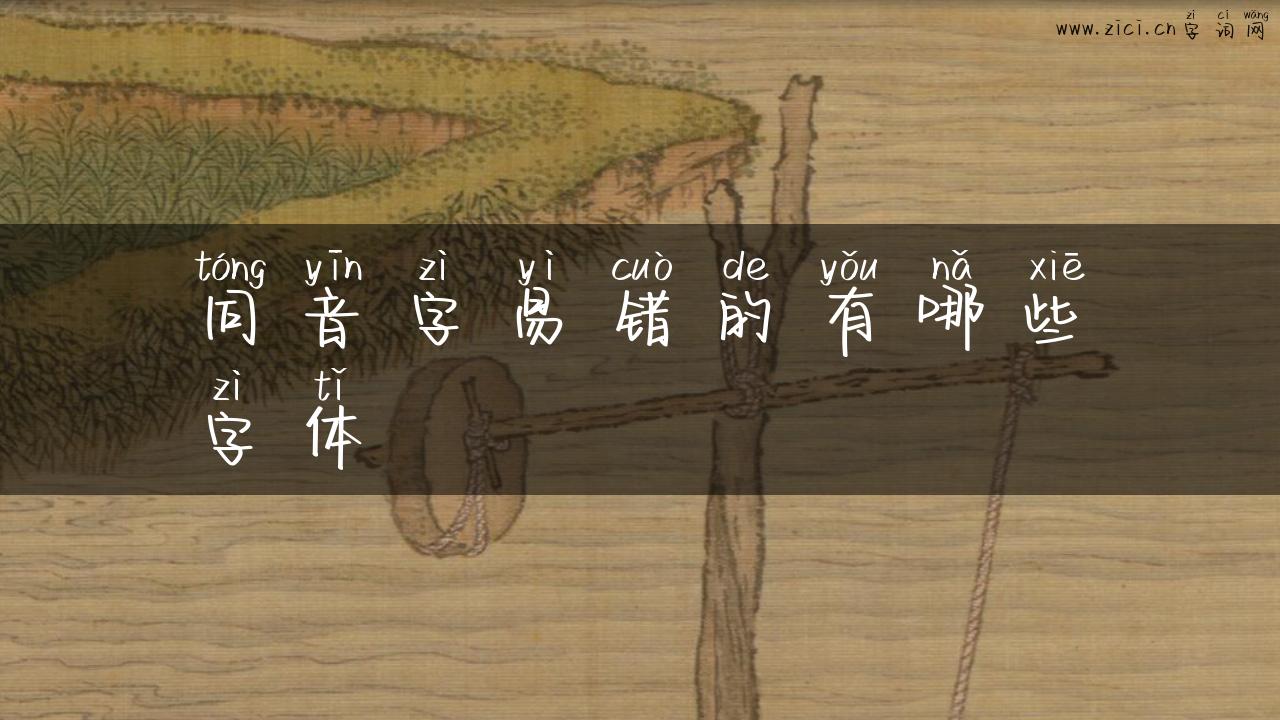 zì cí wǎng
www.zici.cn字词网
tóng yīn zì yì cuò de yǒu nǎ xiē
同音字易错的有哪些
zì tǐ
字体